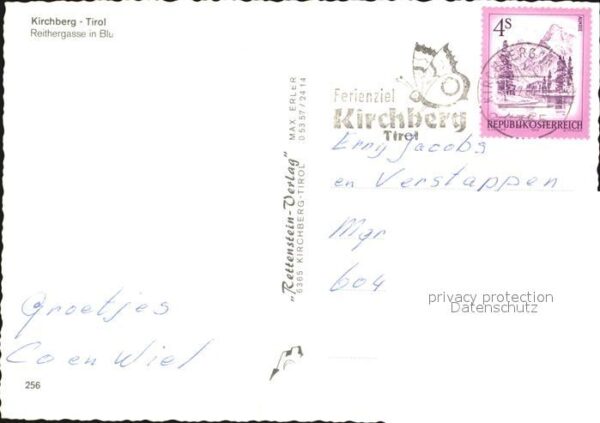 Kirchberg - Tirol
Reithergasse in Blu
4S
REPUBLIK ÖSTERREICH
Ferienziel
Kirchberg
Tirol
MAX ERLER
05357/2414
"Rettenstein-Verlag"
6365 KIRCHBERG-TIROL
Erny Jacobs
en Verstappen
Mgr
604
privacy protection
Datenschutz
Groetjes
Co en Wiel
256